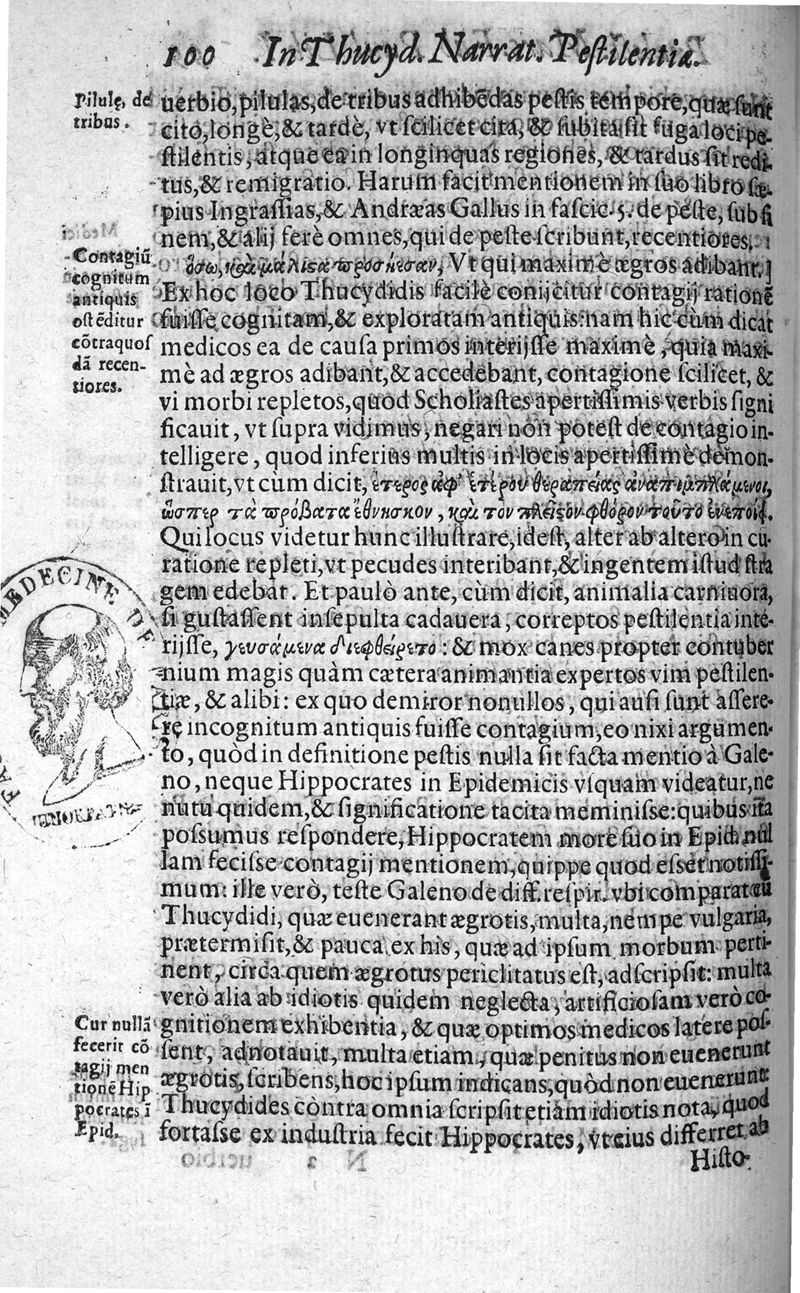 100 In Thucyd. Narrat. Pestilentiæ.
Pilulę, de
tribus.
uerbio, pilulas, de tribus adhibẽdas pestis tempore, quæ sunt
cito, longè, & tardè, vt scilicet cita, & subita sit fuga loci pe-
stilentis, atque ea in longinquas regiones, & tardus sit redi-
tus, & remigratio. Harum facit mentionem in suo libro sæ-
pius Ingrassias, & Andræas Gallus in fascic. 5. de peste, sub fi
nem, & alij ferè omnes, qui de peste scribunt, recentiores.
Contagiũ
cognitum
antiquis
ostẽditur
cõtra quos
dã recen-
tiores.
ὅσω, καὶ μάλιστα προσῄεσαν, Vt qui maximè ægros adibant.
Ex hoc loco Thucydidis facilè conijcitur contagij rationẽ
fuisse cognitam, & exploratam antiquis: nam hic cùm dicat
medicos ea de causa primos interijsse maximè, quia maxi-
mè ad ægros adibant, & accedebant, contagione scilicet, &
vi morbi repletos, quod Scholiastes apertissimis verbis signi
ficauit, vt supra vidimus, negari non potest de contagio in-
telligere, quod inferius multis in locis apertissimè demon-
strauit, vt cùm dicit, ἕτερος ἀφ' ἑτέρου θεραπείας ἀναπιμπλάμενοι,
ὥσπερ τὰ πρόβατα ἔθνησκον, καὶ τὸν πλεῖστον φθόρον τοῦτο ἐνεποίει.
Qui locus videtur hunc illustrare, id est, alter ab altero in cu-
ratione repleti, vt pecudes interibant, & ingentem istud stra
gem edebat. Et paulò ante, cùm dicit, animalia carniuora,
si gustassent insepulta cadauera, correptos pestilentia inte-
rijsse, γευσάμενα διεφθείρετο: & mox canes propter contuber
nium magis quàm cætera animantia expertos vim pestilen-
tiæ, & alibi: ex quo demiror nonullos, qui ausi sunt assere-
re incognitum antiquis fuisse contagium, eo nixi argumen-
to, quòd in definitione pestis nulla sit facta mentio à Gale-
no, neque Hippocrates in Epidemicis vsquam videatur, ne
nutu quidem, & significatione tacita meminisse: quibus ita
possumus respondere, Hippocratem more suo in Epid. nul
lam fecisse contagij mentionem, quippe quod esset notissi-
mum: ille verò, teste Galeno de diff. respir. vbi comparat eũ
Thucydidi, quæ euenerant ægrotis, multa, nempe vulgaria,
prætermisit, & pauca ex his, quæ ad ipsum morbum perti-
nent, circa quem ægrotus periclitatus est, adscripsit: multa
verò alia ab idiotis quidem neglecta, artificiosam verò co-
Cur nullã
fecerit cõ
tagij men
tionẽ Hip
pocrates ĩ
Epid.
gnitionem exhibentia, & quæ optimos medicos latere pos-
sent, adnotauit, multa etiam, quæ penitus non euenerunt
ægrotis, scribens, hoc ipsum indicans, quòd non euenerunt.
Thucydides còntra omnia scripsit etiam idiotis nota, quod
fortasse ex industria fecit Hippocrates, vt eius differret ab
Histo-
MEDECINE DE